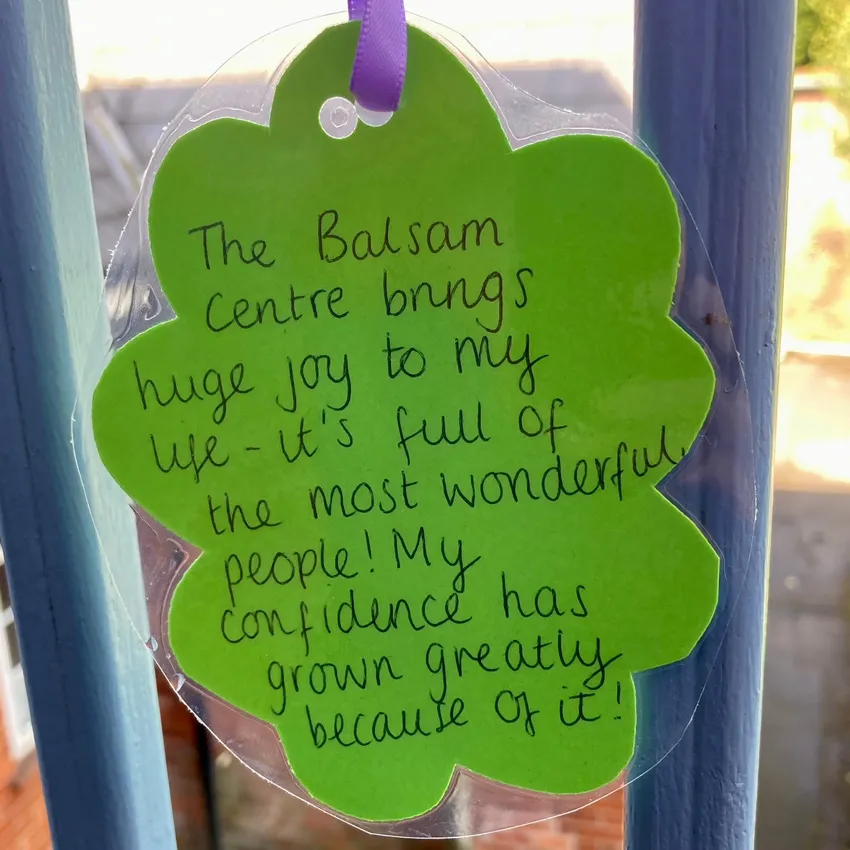 The Balsam
Centre brings
huge joy to my
life - it's full of
the most wonderful
people! My
confidence has
grown greatly
because of it!